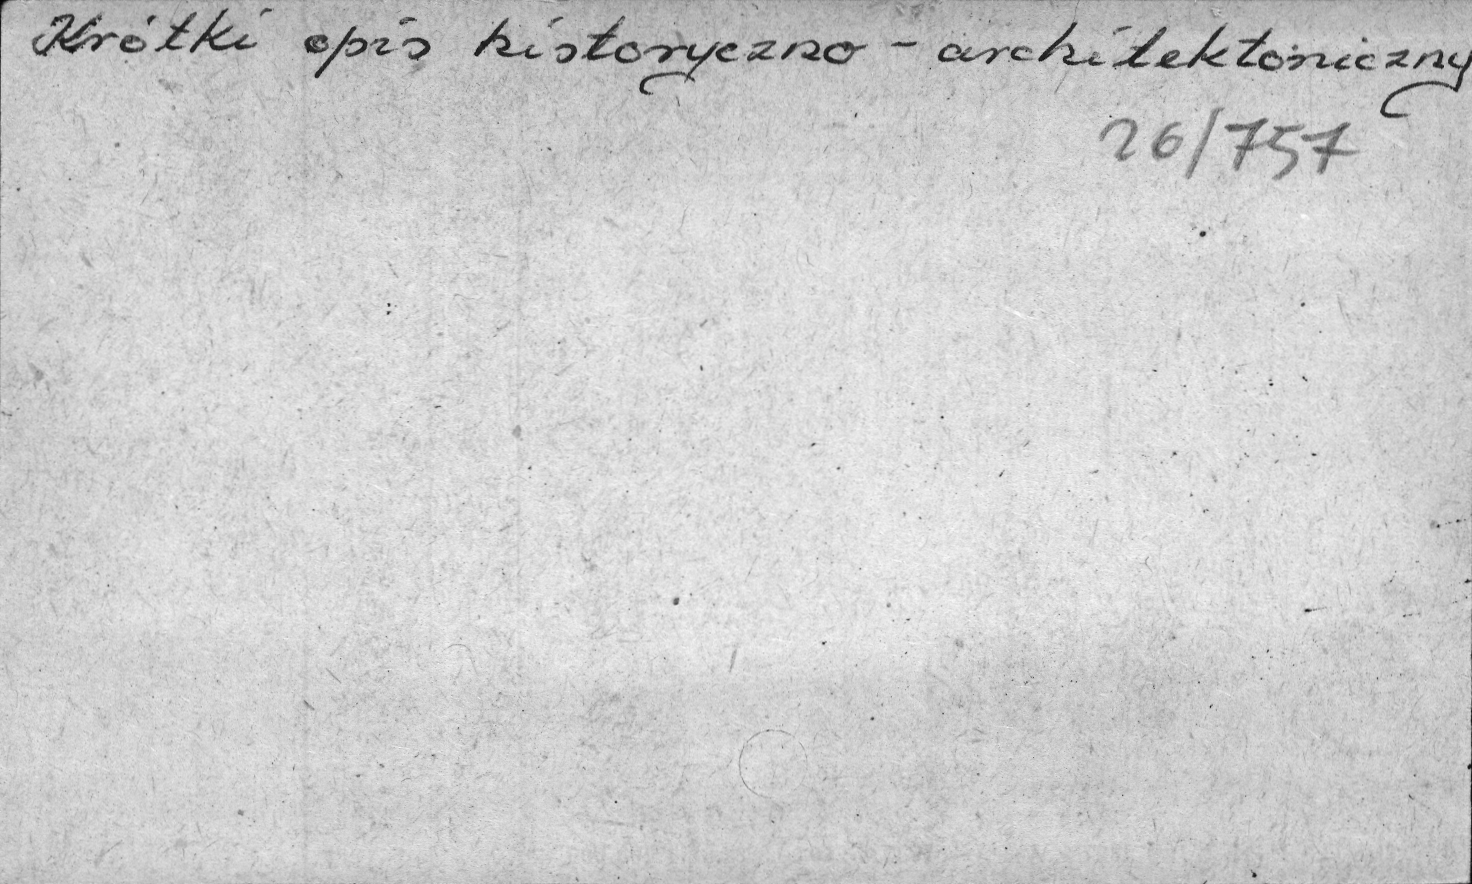 Krótki opis historyczno - architektoniczny
26/757